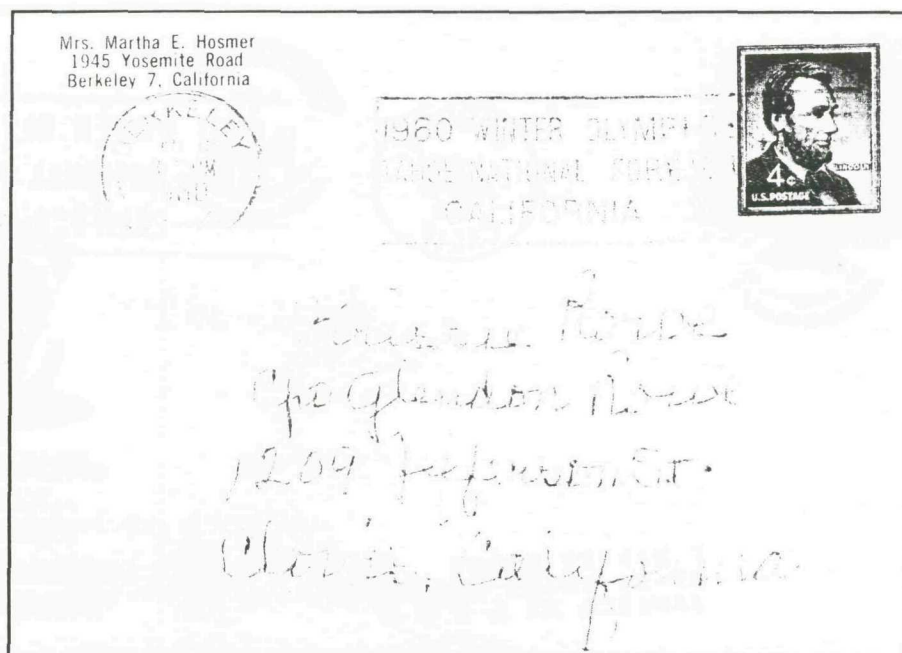 Mrs. Martha E. Hosmer
1945 Yosemite Road
Berkeley 7, California
BERKELEY
1960 WINTER OLYMPI
TAHOE NATIONAL FORE
CALIFORNIA
LINCOLN
4¢
U.S. POSTAGE
Rowe
c/o Glendon Rowe
1209 Jefferson St.
Clovis, California